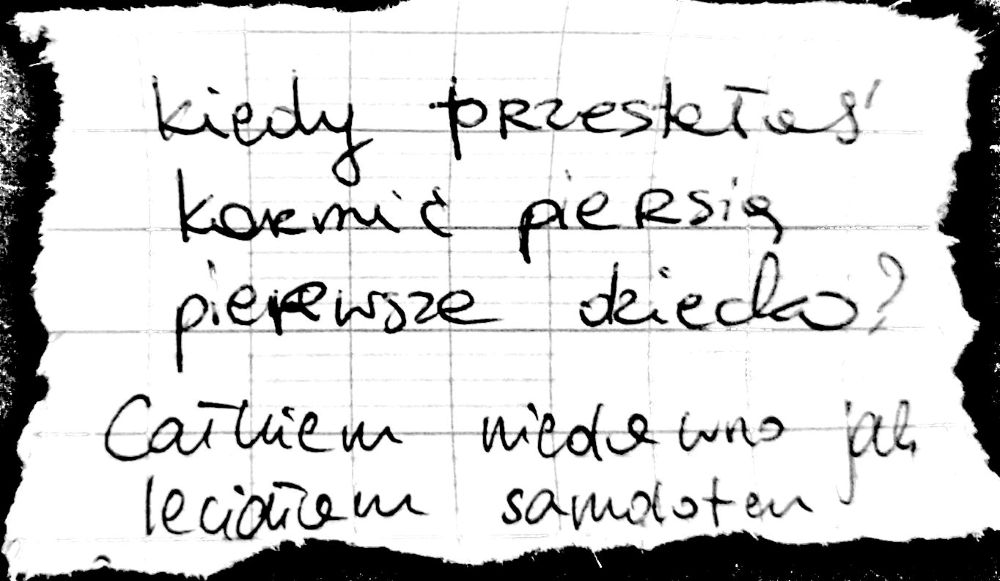 kiedy przestałaś
karmić piersią
pierwsze dziecko?
Całkiem niedawno jak
leciałam samolotem